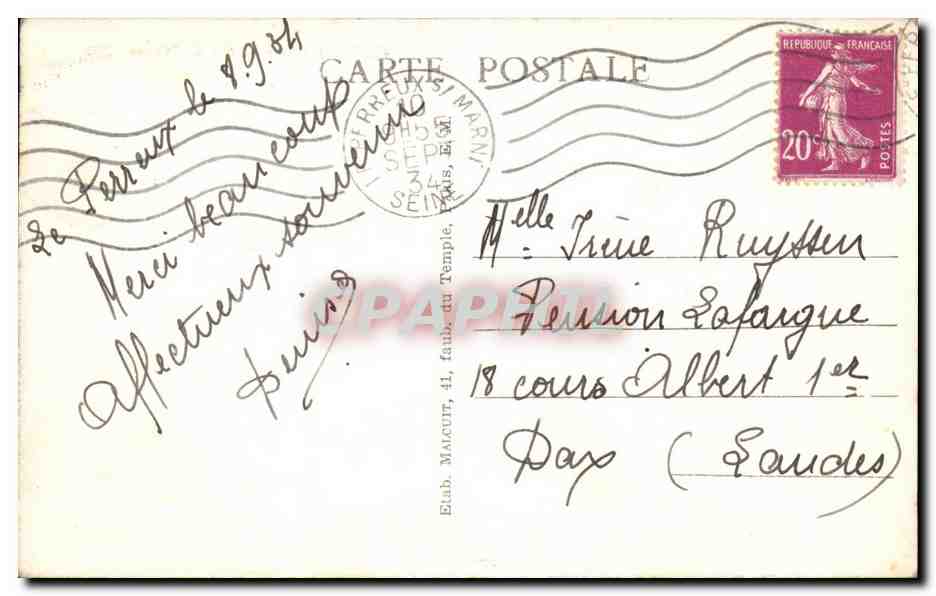 CARTE POSTALE
Le Perreux le 8.9.34
Merci beaucoup
Affectueux souvenirs
Denise
PERREUX S/ MARNE
SEPT
34
SEINE
REPUBLIQUE FRANÇAISE
20c
POSTES
Melle Irène Ruyssen
Pension Lafargue
18 cours Albert 1er
Dax (Landes)
Etab. MALCUIT, 41, faub. du Temple, Paris, E. M.
CPAPHIL